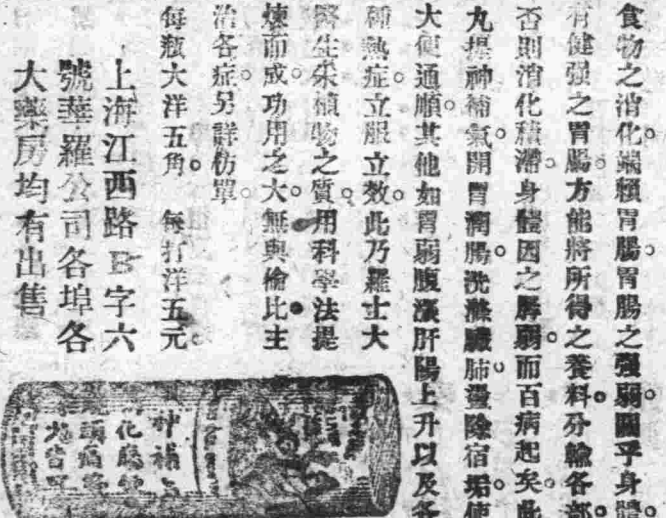 食物之消化端賴胃腸。胃腸之强弱。關乎身體。
有健强之胃腸。方能將所得之養料。分輸各部。
否則消化積滯。身體因之孱弱。而百病起矣。此
丸提神補氣。開胃潤腸。洗滌臟肺。盪除宿垢。使
大便通順。其他如胃弱腹漲肝陽上升以及各
種熱症。立服立效。此乃羅士大
醫生采植物之質。用科學法提
煉而成。功用之大。無與倫比。主
治各症。另詳仿單。
每瓶大洋五角。 每打洋五元。
上海江西路B字六
號華羅公司各埠各
大藥房均有出售
神補
化腸
頭痛